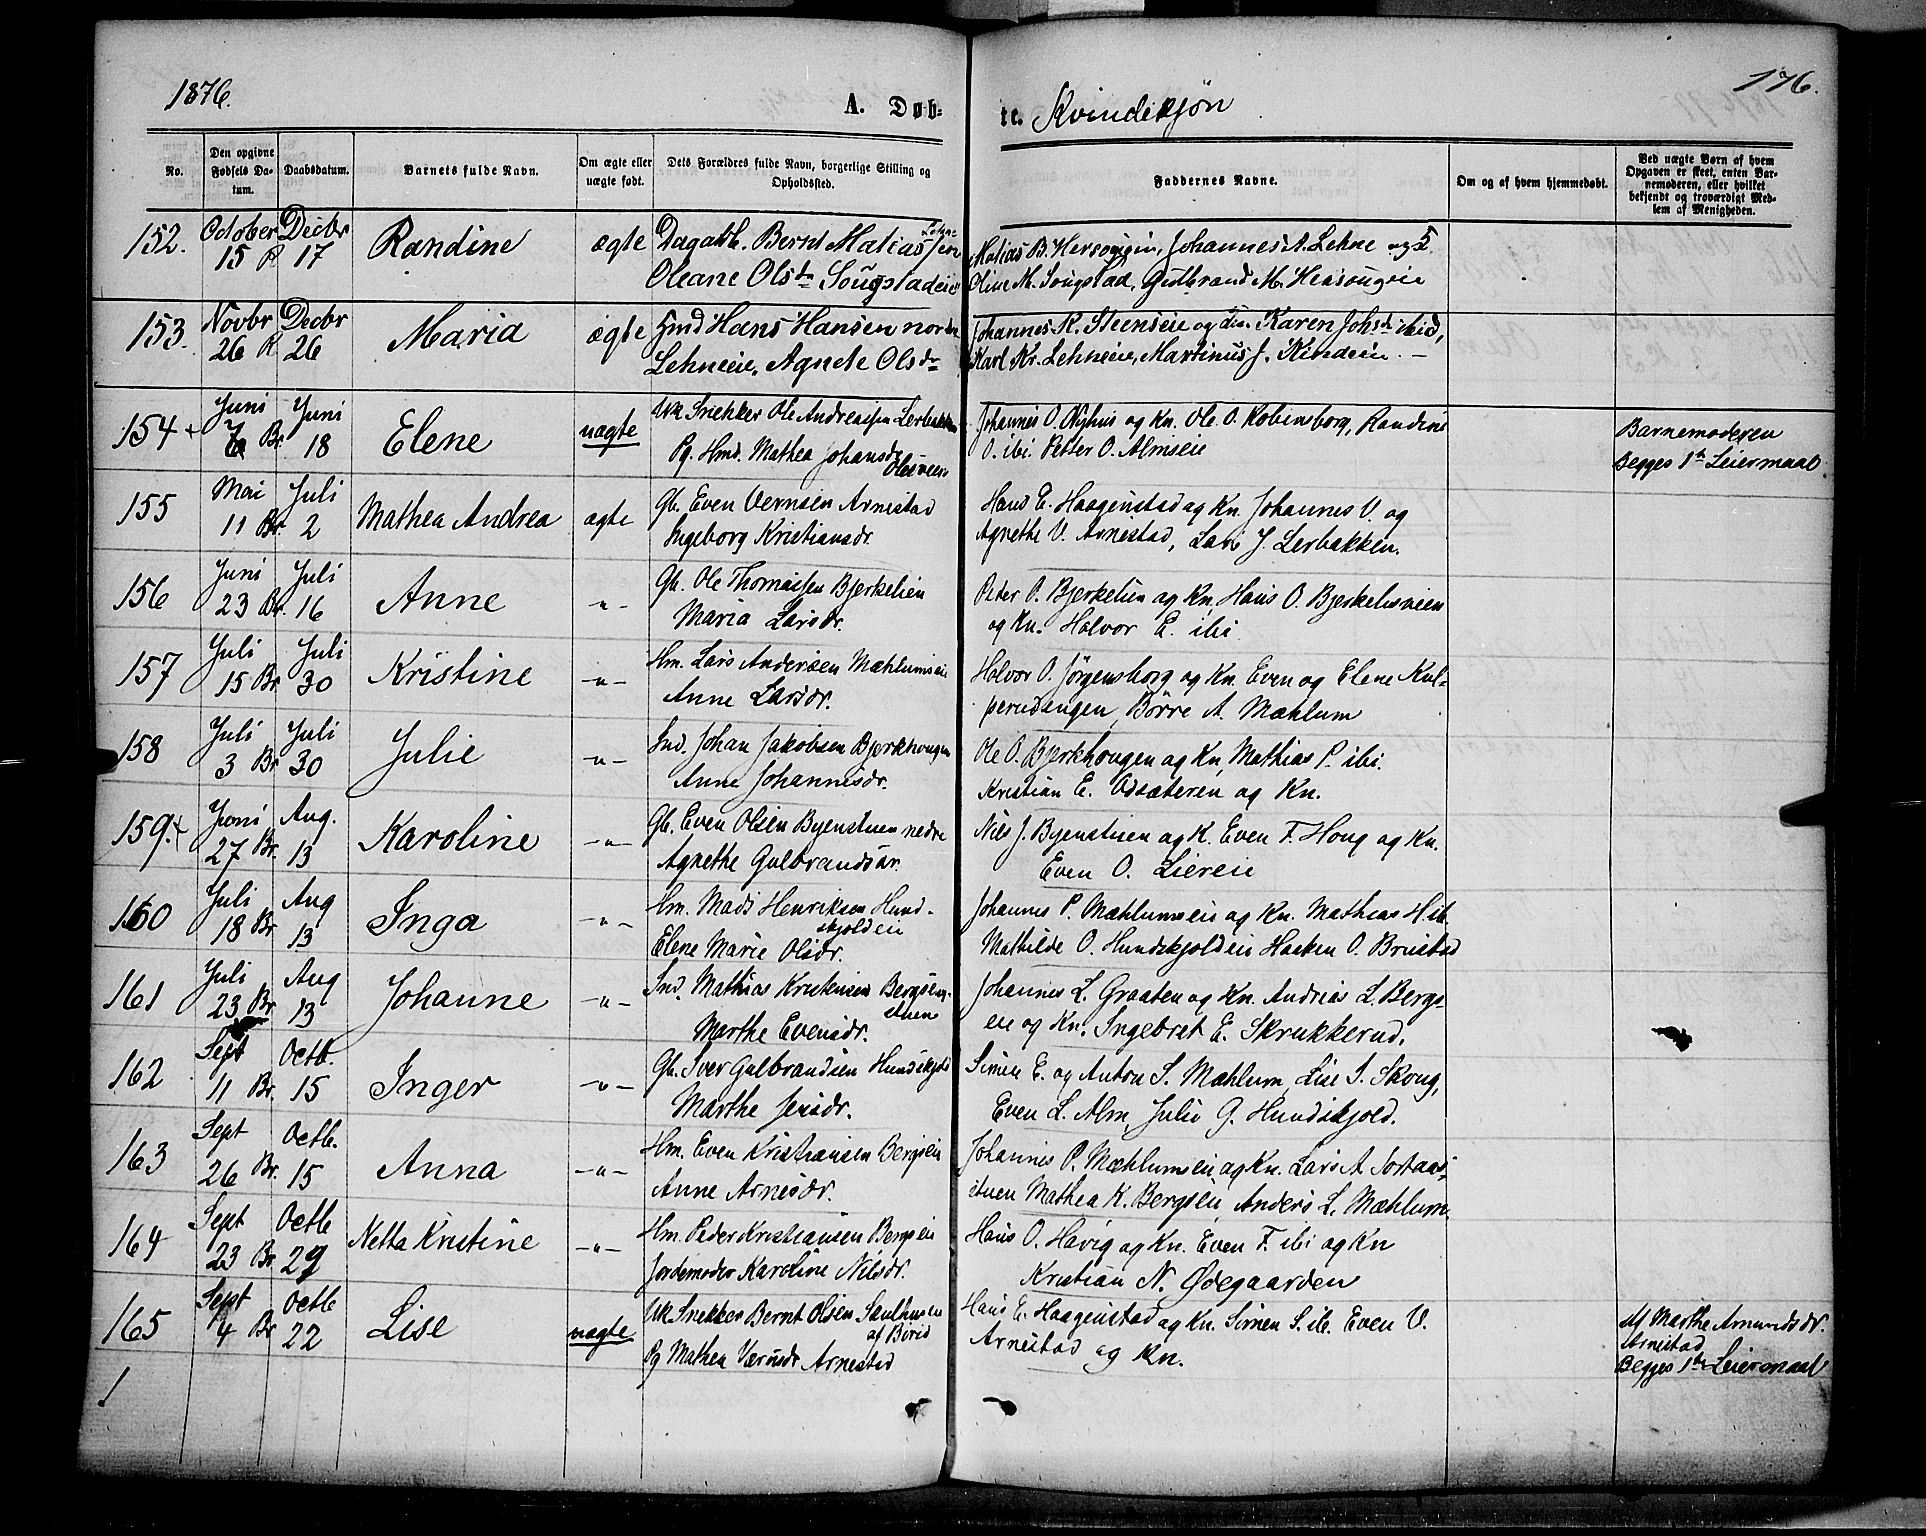 1876.
A. Døb-
te. Kvindekjøn
176.
No.
Den opgivne Fødsels Da-tum.
Daabsdatum.
Barnets fulde Navn.
Om ægte eller uægte født.
Dets Forældres fulde Navn, borgerlige Stilling og Opholdssted.
Faddernes Navne.
Om og af hvem hjemmedøbt.
Ved uægte Børn af hvem Opgaven er skeet, enten Bar-nemoderen, eller hvilket bekjendt og troværdigt Med-lem af Menigheden.
152. October 15 R Decbr 17 Randine ægte
Dagarb. Bernt Matiassen
Oleane Olsdr Sougstadeie
Matias B. Hersougeien, Johannes A. Lehne og
Oline M. Sougstad, Gudbrand M. Hersougeie
153. Novbr 26 R Decbr 26 Maria ægte
Hmd Hans Hansen nordre
Lehneeie, Agnete Olsdr
Johannes K. Steenseie og Karen Johsdr ibid,
Karl Kr. Lehneeie, Martinus J. Kindeie. –
154 + Juni 6 Br. Juni 18 Elene uægte
Uk Snekker Ole Andreassen Lerbakken
Pg. Hmd. Mathea Johansdr
Johannes O. Nyhus og Kn. Ole O. Kobensborg, Randine
O. ibi. Petter O. Almseie
Barnemoderen
Begges 1ste Leiermaal
155 Mai 11 Br. Juli 2 Mathea Andrea ægte
Gb. Even Vernsen Arnestad
Ingeborg Kristiansdr.
Hans E. Haagenstad og Kn. Johannes V. og
Agnethe V. Arnestad, Lars J. Lerbakken.
156 Juni 23 Br. Juli 16 Anne -"-
Gb. Ole Thomassen Bjerkelien
Maria Larsdr.
Peter O. Bjerkelien og Kn, Hans O. Bjerkelieveien
og Kn. Halvor E. ibi
157 Juli 15 Br. Juli 30 Kristine -"-
Hm. Lars Andersen Mæhlumseie
Anne Larsdr.
Halvor O. Jørgensborg og Kn. Even og Elene Kul-
perudengen, Børre A. Mæhlum
158 Juli 3 Br Juli 30 Julie -"-
Ind. Johan Jakobsen Bjerkhougen
Anne Johannesdr.
Ole O. Bjerkhougen og Kn, Mathias P. ibi.
Kristian E. Odsæteren og Kn.
159. + Juni 27 Br. Aug. 13 Karoline -"-
Gb. Even Olsen Byenstuen nedre
Agnethe Gulbrandsdr.
Nils J. Byenstuen og K. Even F. Houg og Kn.
Even O. Liereie
160 Juli 18 Br. Aug 13 Inga -"-
Hm. Mads Henriksen Hund-
skjoldeie
Elene Marie Olsdr.
Johannes P. Mæhlumseie og Kn. Mathias H. ib.
Mathilde O. Hundskjoldeie Haaken O. Brustad
161 Juli 23 Br Aug 13 Johanne -"-
Ind. Mathias Kristensen Bergseng-
stuen
Marthe Evensdr.
Johannes L. Graaten og Kn. Andreas L. Bergs-
eie og Kn. Ingebret E. Skrukkerud.
162 Sept 11 Br. Octb. 15 Inger -"-
Gb. Iver Gulbrandsen Hundskjold
Marthe Jensdr.
Simen E. og Anton S. Mæhlum, Lise I. Skoug,
Even L. Alm, Julie G. Hundskjold.
163 Sept 26 Br. Octb. 15 Anna -"-
Hm. Even Kristiansen Bergseie
Anne Arnesdr.
Johannes P. Mæhlumseie og Kn. Lars A. Sortaas-
stuen Mathea K. Bergseie, Anders L. Mæhlum.
164 Sept 23 Br. Octb 29 Netta Kristine -"-
Hm. Peder Kristiansen Bergseie
Jordemoder Karoline Nilsdr.
Hans O. Havig og Kn. Even F. ibi og Kn
Kristian N. Ødegaarden
165 Sept 4 Br Octb 22 Lise uægte
Uk Snekker Bernt Olsen Saulhusen
af Børid
Pg Mathea Værnsdr Arnestad
Hans E. Haagenstad og Kn. Simen S. ib. Even V.
Arnestad og Kn.
Af Marthe Amundsdr.
Arnestad
Begges 1ste Leiermaal
1